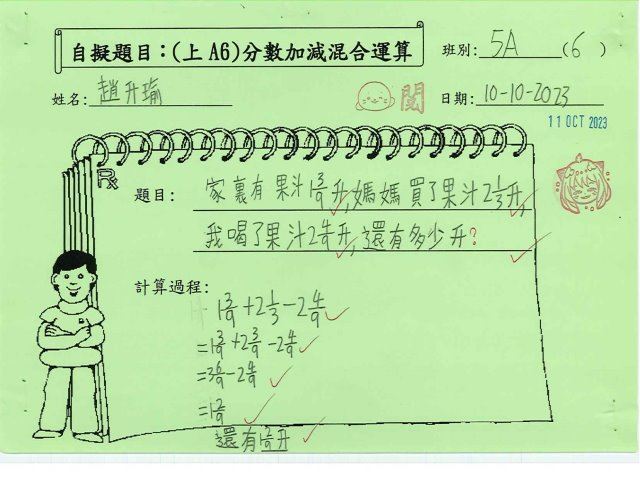 自擬題目：(上 A6)分數加減混合運算
班別: 5A (6)
姓名: 趙升瑜
閱
日期: 10-10-2023
11 OCT 2023
題目: 家裏有果汁1 3/9升,媽媽買了果汁2 1/3升,
我喝了果汁2 4/9升,還有多少升?
計算過程:
1 3/9 + 2 1/3 - 2 4/9
= 1 3/9 + 2 3/9 - 2 4/9
= 3 6/9 - 2 4/9
= 1 2/9
還有1 2/9升